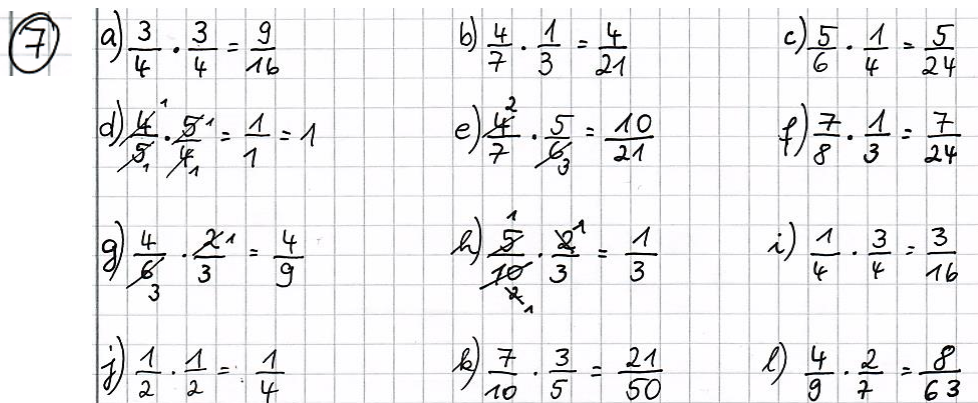 7 a) 3/4 · 3/4 = 9/16 b) 4/7 · 1/3 = 4/21 c) 5/6 · 1/4 = 5/24
d) 4̸¹/5̸₁ · 5̸¹/4̸₁ = 1/1 = 1 e) 4̸²/7 · 5/6̸₃ = 10/21 f) 7/8 · 1/3 = 7/24
g) 4/6̸₃ · 2̸¹/3 = 4/9 h) 5̸¹/1̸0̸ 2̸₁ · 2̸¹/3 = 1/3 i) 1/4 · 3/4 = 3/16
j) 1/2 · 1/2 = 1/4 k) 7/10 · 3/5 = 21/50 l) 4/9 · 2/7 = 8/63